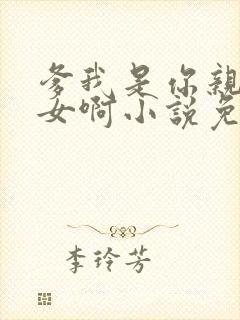 爹我是你親
女啊小說免
李玲芳